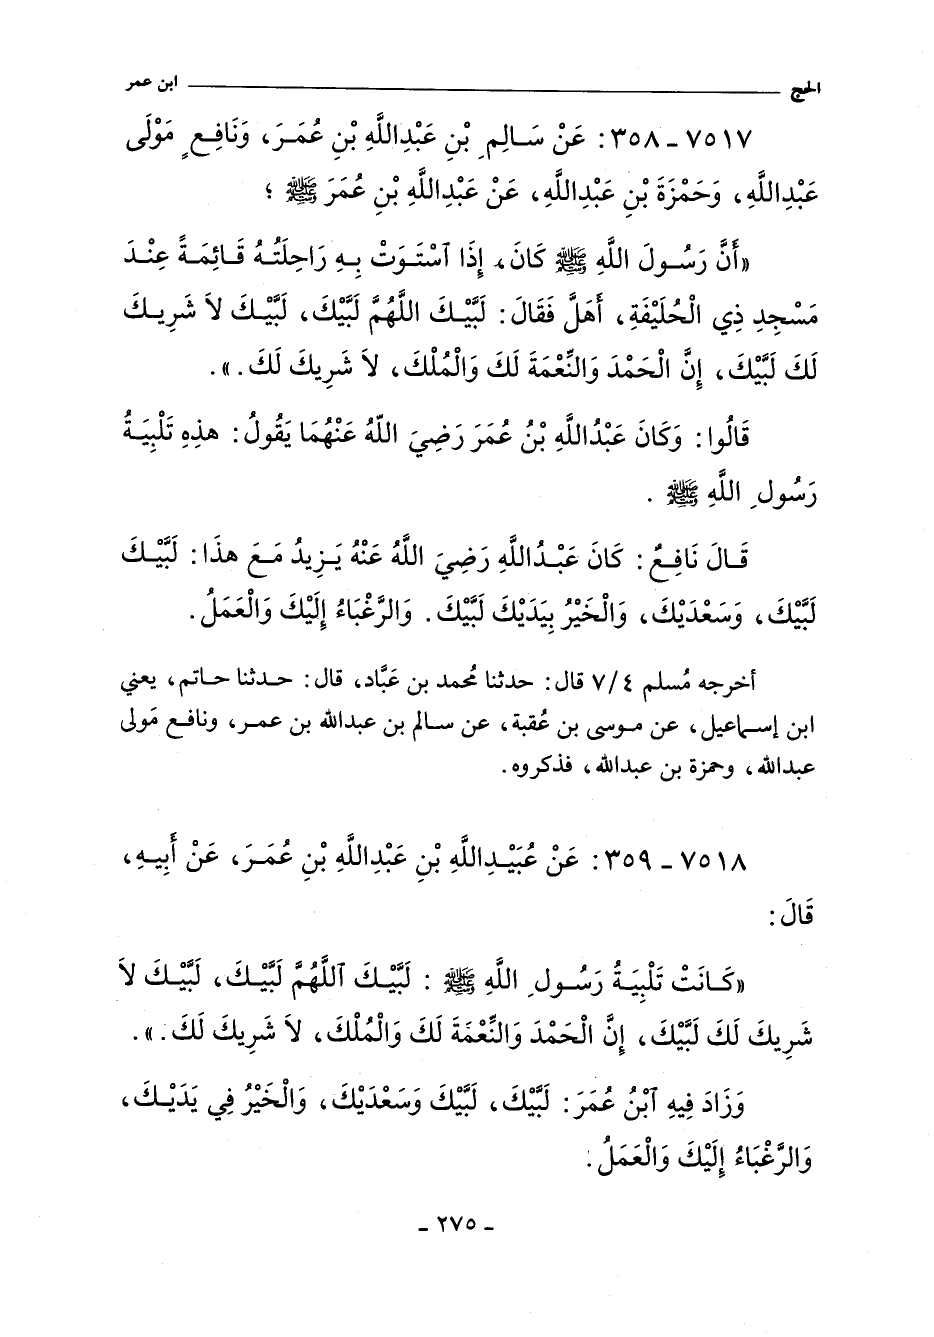 الحج ابن عمر
٧٥١٧ ـ ٣٥٨: عَنْ سَالِمِ بْنِ عَبْدِاللَّهِ بْنِ عُمَرَ، وَنَافِعٍ مَوْلَى
عَبْدِاللَّهِ، وَحَمْزَةَ بْنِ عَبْدِاللَّهِ، عَنْ عَبْدِاللَّهِ بْنِ عُمَرَ ﷺ ؛
«أَنَّ رَسُولَ اللَّهِ ﷺ كَانَ، إِذَا ٱسْتَوَتْ بِهِ رَاحِلَتُهُ قَائِمَةً عِنْدَ
مَسْجِدِ ذِي الْحُلَيْفَةِ، أَهَلَّ فَقَالَ: لَبَّيْكَ اللَّهُمَّ لَبَّيْكَ، لَبَّيْكَ لاَ شَرِيكَ
لَكَ لَبَّيْكَ، إِنَّ الْحَمْدَ وَالنِّعْمَةَ لَكَ وَالْمُلْكَ، لاَ شَرِيكَ لَكَ.».
قَالُوا: وَكَانَ عَبْدُاللَّهِ بْنُ عُمَرَ رَضِيَ اللَّهُ عَنْهُمَا يَقُولُ: هذِهِ تَلْبِيَةُ
رَسُولِ اللَّهِ ﷺ .
قَالَ نَافِعٌ: كَانَ عَبْدُاللَّهِ رَضِيَ اللَّهُ عَنْهُ يَزِيدُ مَعَ هذَا: لَبَّيْكَ
لَبَّيْكَ، وَسَعْدَيْكَ، وَالْخَيْرُ بِيَدَيْكَ لَبَّيْكَ. وَالرَّغْبَاءُ إِلَيْكَ وَالْعَمَلُ.
أخرجه مُسلم ٧/٤ قال: حدثنا مُحمد بن عَبَّاد، قال: حدثنا حاتم، يعني
ابن إسماعيل، عن موسى بن عُقبة، عن سالم بن عبدالله بن عمر، ونافع مَولى
عبدالله، وحمزة بن عبدالله، فذكروه.
٧٥١٨ ـ ٣٥٩: عَنْ عُبَيْدِاللَّهِ بْنِ عَبْدِاللَّهِ بْنِ عُمَرَ، عَنْ أَبِيهِ،
قَالَ:
«كَانَتْ تَلْبِيَةُ رَسُولِ اللَّهِ ﷺ : لَبَّيْكَ ٱللَّهُمَّ لَبَّيْكَ، لَبَّيْكَ لاَ
شَرِيكَ لَكَ لَبَّيْكَ، إِنَّ الْحَمْدَ وَالنِّعْمَةَ لَكَ وَالْمُلْكَ، لاَ شَرِيكَ لَكَ.».
وَزَادَ فِيهِ ٱبْنُ عُمَرَ: لَبَّيْكَ، لَبَّيْكَ وَسَعْدَيْكَ، وَالْخَيْرُ فِي يَدَيْكَ،
وَالرَّغْبَاءُ إِلَيْكَ وَالْعَمَلُ.
ـ ٢٧٥ ـ